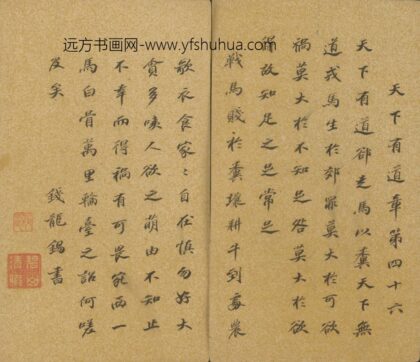 远方书画网-www.yfshuhua.com
天下有道章第四十六
天下有道卻走馬以糞天下無
道戎馬生於郊罪莫大於可欲
禍莫大於不知足咎莫大於欲
得故知足之足常足
戰馬賤於糞壤耕牛到處農
歡衣食家〻自在慎勿好大
貪多人欲之萌由不知止
不幸而得禍有可畏宛西一
馬白骨萬里輪臺之詔何嗟
及矣
錢龍錫書